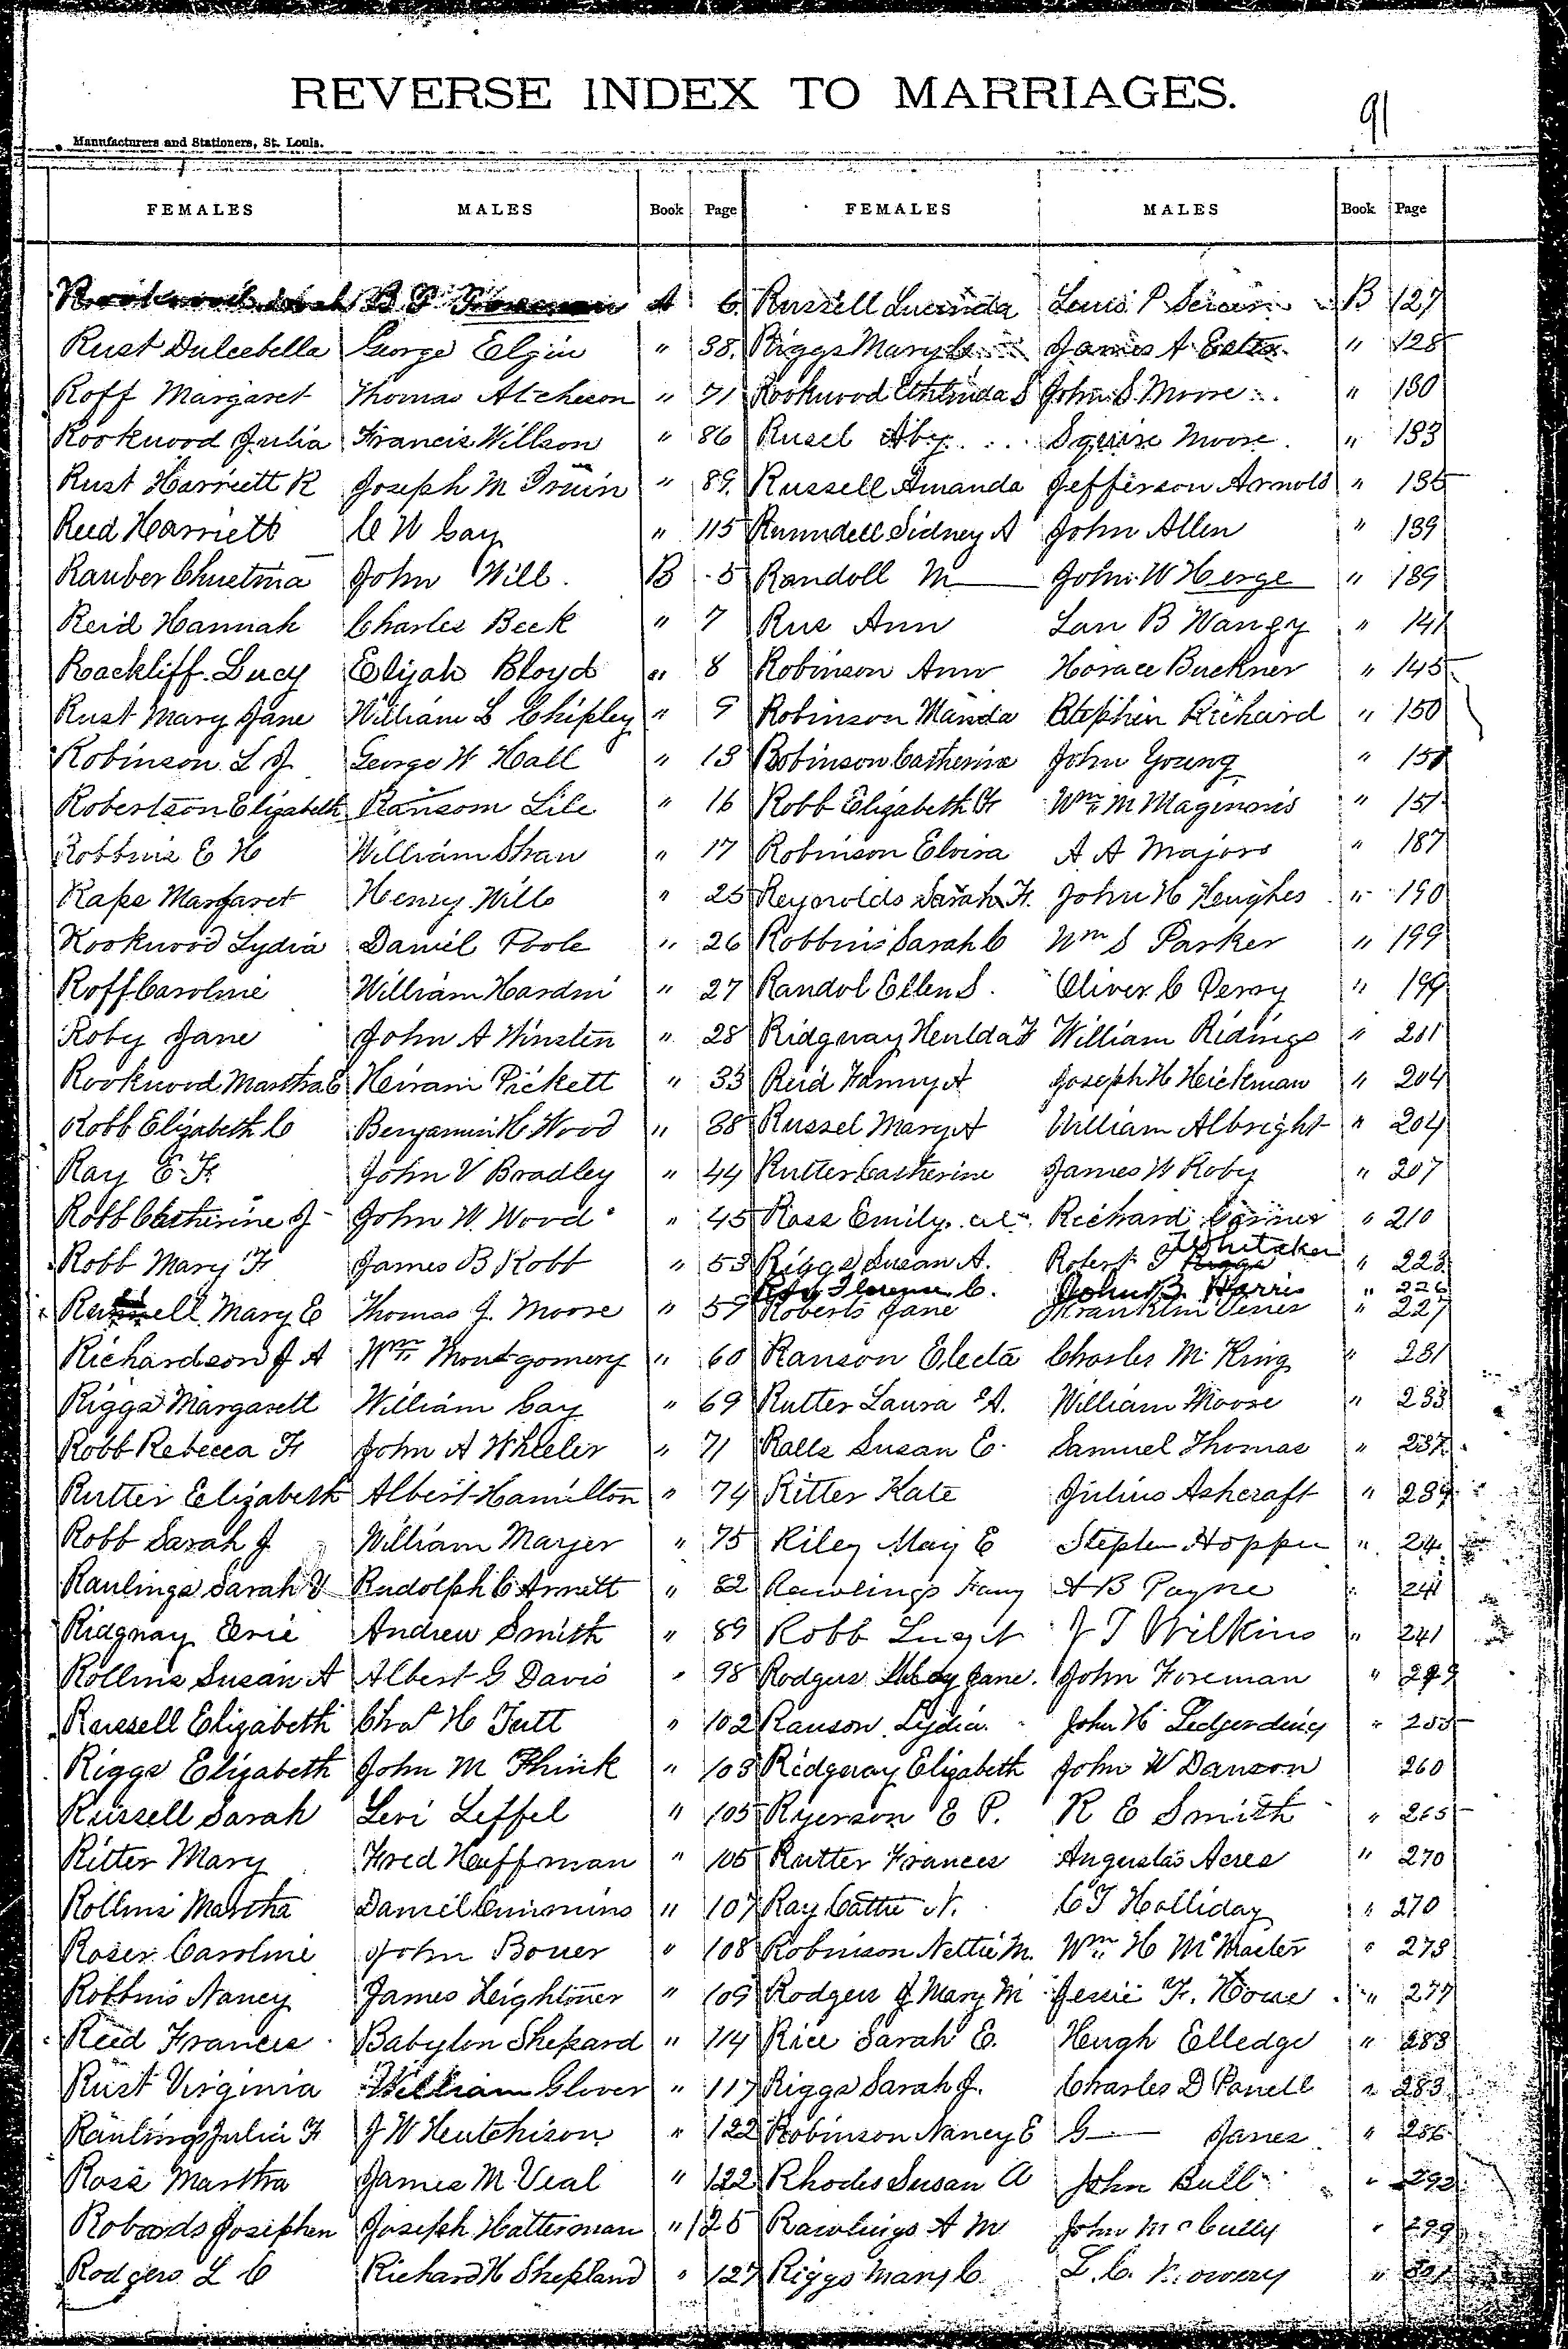 REVERSE INDEX TO MARRIAGES.
91
Manufacturers and Stationers, St. Louis.
FEMALES MALES Book Page FEMALES MALES Book Page
B A 6 Russell Lucinda Louis P B 127
Rust Dulcebella George Elgin " 38 Riggs Mary James A Estes " 128
Roff Margaret Thomas Atcheson " 71 Rookwood S John S Moore " 130
Rookwood Julia Francis Willson " 86 Rusel Aby Squire Moore " 133
Rust Harriett R Joseph M Irwin " 89 Russell Amanda Jefferson Arnold " 135
Reed Harriett C W Cay " 115 Runndell Sidney A John Allen " 139
Rauber John Will B 5 Randoll M John W Herge " 139
Reid Hannah Charles Beck " 7 Rus Ann Lan B Wangy " 141
Rackliff Lucy Elijah Bloyd " 8 Robinson Ann Horace Buckner " 145
Rust Mary Jane William L Chipley " 9 Robinson Manda Stephen Richard " 150
Robinson L J George W Hall " 13 Robinson Catherine John Young " 151
Robertson Elizabeth Ransom Lile " 16 Robb Elizabeth F Wm M Maginnis " 151
Robbins E H William Shaw " 17 Robinson Elvira A A Majors " 187
Rape Margaret Henry Wills " 25 Reynolds Sarah F. John H Hughes " 190
Rookwood Lydia Daniel Poole " 26 Robbins Sarah C Wm S Parker " 199
Roff Caroline William Hardin " 27 Randol Ellen S. Oliver C Perry " 199
Roby Jane John A Winsten " 28 Ridgway Hulda F William Ridings " 201
Rookwood Martha E Heiram Pickett " 33 Reid Fanny A Joseph H Hickman " 204
Robb Elizabeth C Benjamin H Wood " 38 Russel Mary A William Albright " 204
Ray E F. John V Bradley " 44 Rutter Catherine James W Roby " 207
Robb Catherine J John W. Wood " 45 Ross Emily Richard " 210
Whitaker
Robb Mary F James B Robb " 53 Riggs Susan A. Robert T Riggs " 223
Florence C. John B. Harris " 226
Mary E Thomas J. Moore " 59 Roberts Jane Franklin " 227
Richardson J A Wm Montgomery " 60 Ranson Electa Charles M King " 231
Riggs Margarett William Cay " 69 Rutter Laura A. William Moore " 233
Robb Rebecca F John A Wheeler " 71 Ralls Susan E. Samuel Thomas " 237
Rutter Elizabeth Albert Hamilton " 74 Ritter Kate Julius Ashcraft " 239
Robb Sarah J William Maryer " 75 Riley May E Stephen Hopper " 24
Raulings Sarah V Rudolph C Arnett " 82 Rawlings Fany A B Payne " 241
Ridgway Evie Andrew Smith " 89 Robb J T Wilkins " 241
Rollins Susan A Albert G Davis " 98 Rodgers Jane. John Foreman " 249
Russell Elizabeth Chas H Tutt " 102 Ranson Lydia. John H Ledgerding " 255
Riggs Elizabeth John M Flink " 103 Ridgway Elizabeth John W Dawson 260
Russell Sarah Levi Leffel " 105 Ryerson E P. R E Smith " 265
Ritter Mary Fred Huffman " 105 Rutter Frances Augustas Acres " 270
Rollins Martha Daniel Cummins " 107 Ray Cattie N. C T Holliday " 270
Roser Caroline John Bouer " 108 Robinson Nettie M. Wm H McMaster " 273
Robbins Nancy James Leightner " 109 Rodgers J Mary M Jessie F. House " 277
Reed Frances Babylon Shepard " 114 Rice Sarah E. Hugh Elledge " 283
Rust Virginia William Glover " 117 Riggs Sarah J. Charles D Panell " 283
Raulings Julia F J W Hutchison " 122 Robinson Nancy E G Janes " 286
Ross Martha James M Veal " 122 Rhodes Susan A John Bull " 292
Roboods Josephen Joseph Hatterman " 125 Rawlings A M John McCully " 299
Rodgers L C Richard H Shepland " 127 Riggs Mary C. L. C. Mowery " 301